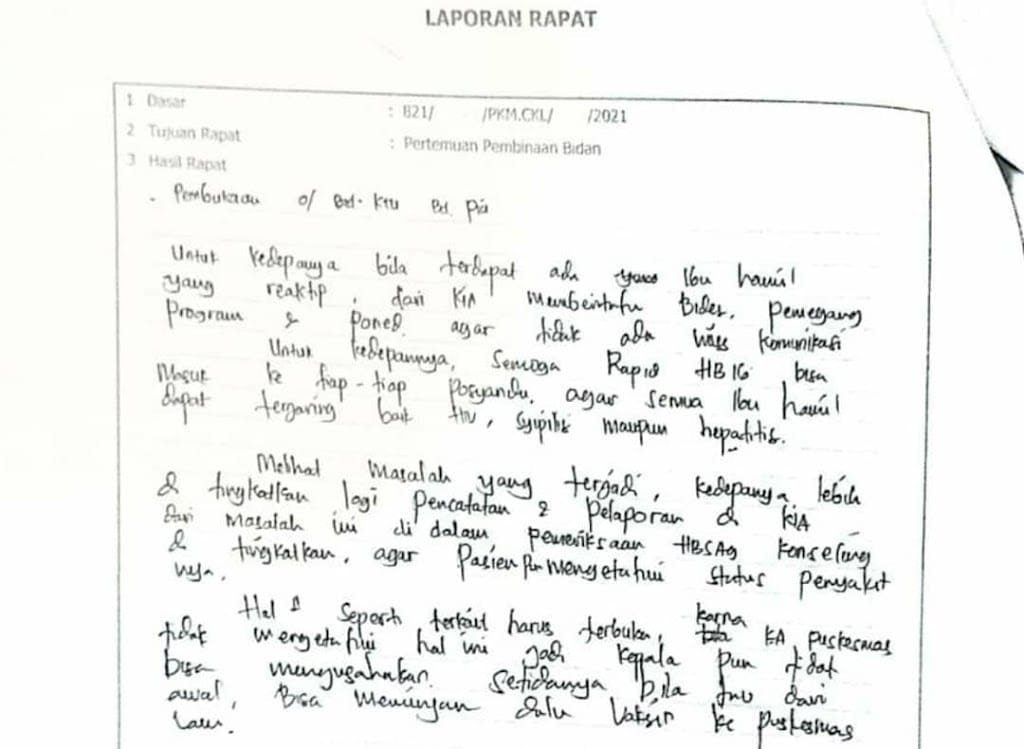 LAPORAN RAPAT
1 Dasar : 821/ /PKM.CKL/ /2021
2 Tujuan Rapat : Pertemuan Pembinaan Bidan
3 Hasil Rapat
. Pembukaan o/ Bd. KTU Bd. Pia
Untuk kedepanya bila terdapat ada Ibu hamil
yang reaktif, dari KIA memberitahu Bides, pemegang
Program & Poned. agar tidak ada komunikasi
Untuk kedepannya, Semoga Rapid HBIG bisa
Masuk ke tiap-tiap Posyandu. agar semua Ibu hamil
dapat terjaring baik HIV, Syipilis maupun hepatitis.
Melihat Masalah yang terjadi, kedepanya lebih
di tingkatkan lagi Pencatatan & Pelaporan di KIA
dari Masalah ini di dalam pemeriksaan HBSAg konseling
di tingkatkan, agar Pasien pun mengetahui status penyakit
nya.
Hal seperti terkait harus terbuka, karna KA puskesmas
tidak mengetahui hal ini jadi kepala pun tidak
bisa mengusahakan. Setidanya bila tau dari
awal, Bisa Meminjam dulu Vaksin ke puskesmas
Lain.